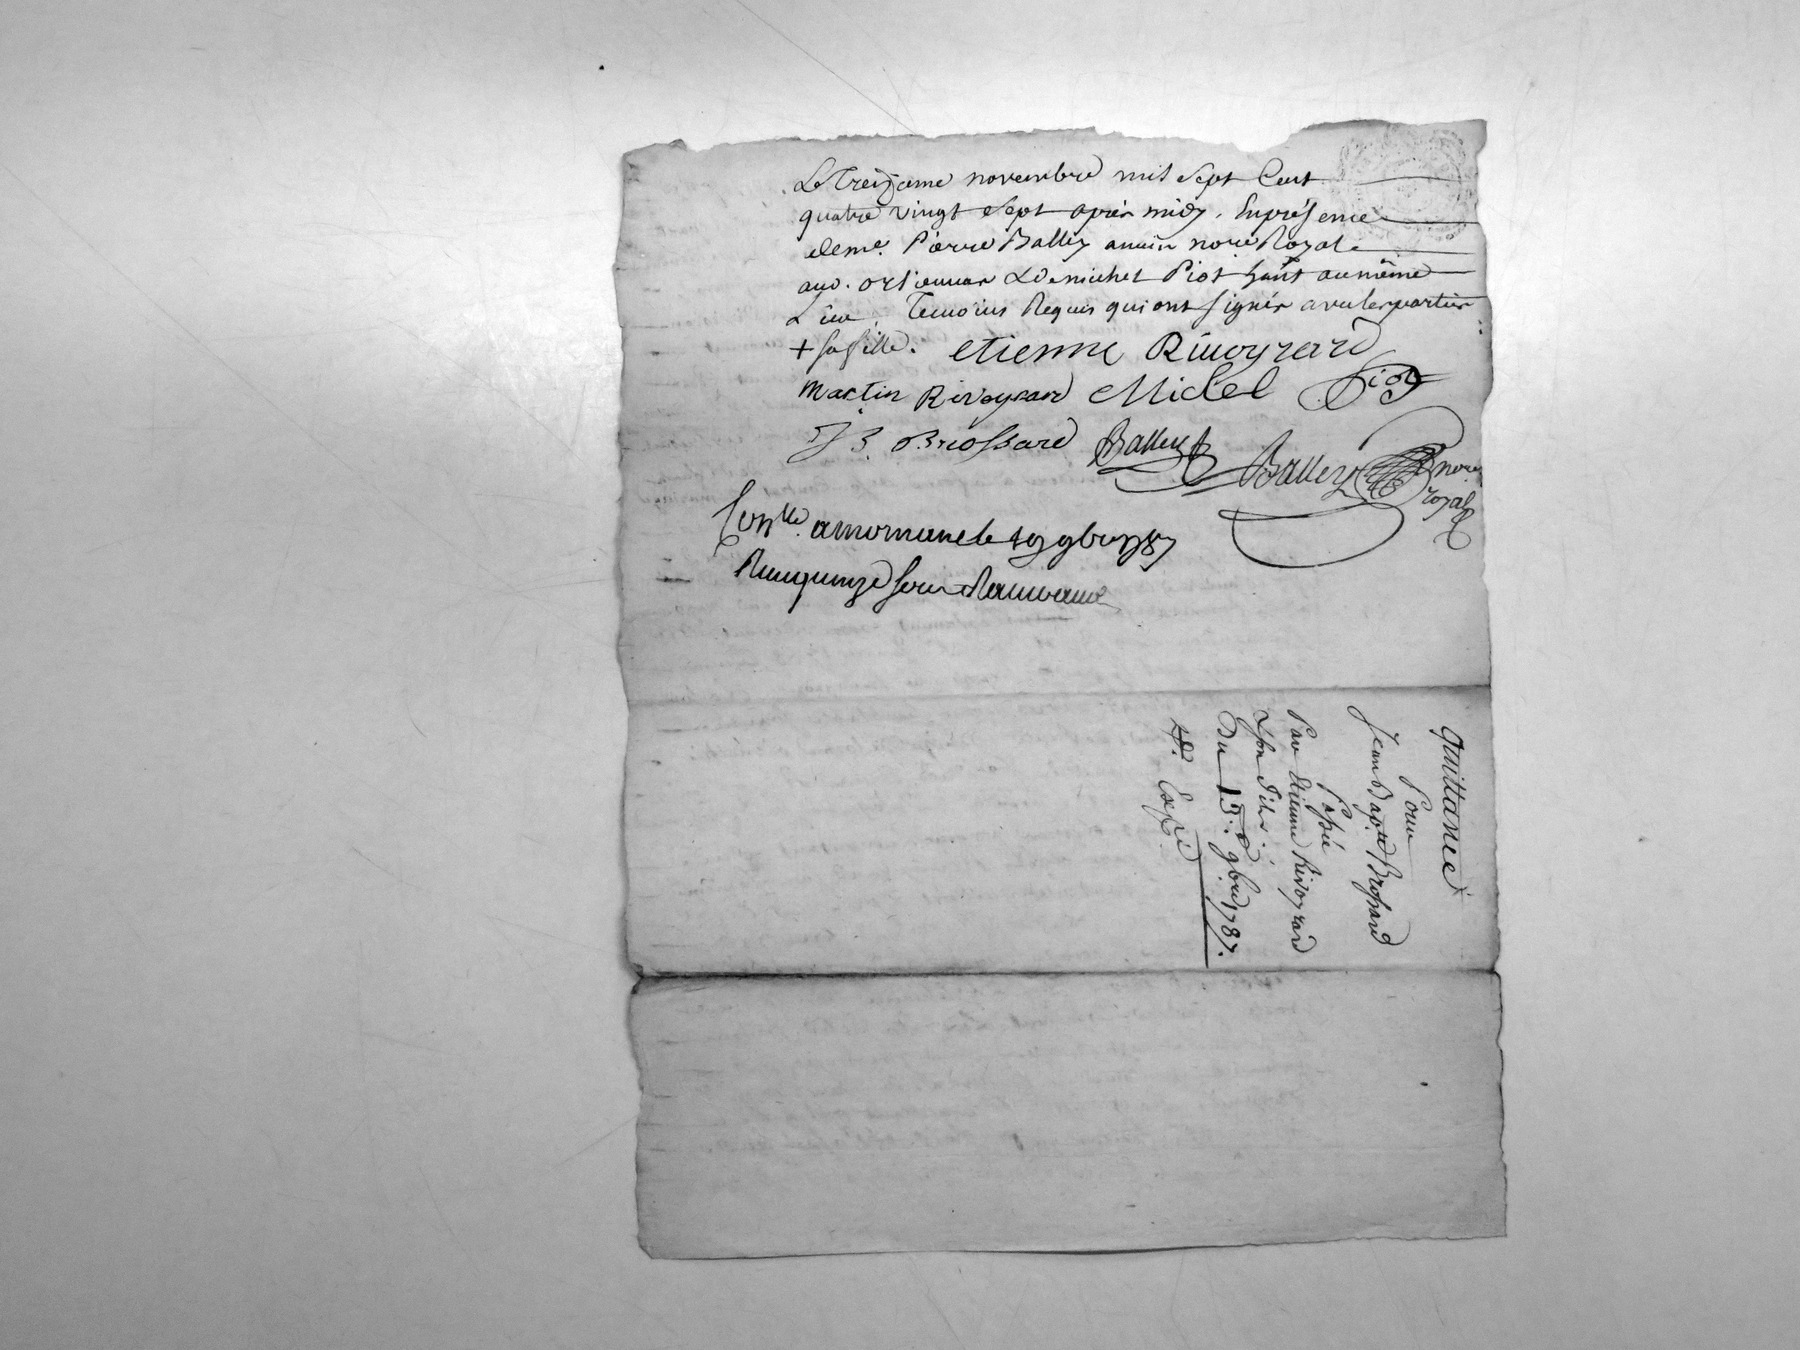 Le treizieme novembre mil sept Cent
quatre vingt sept après midy. En présence
de me. Pierre Balley ancien nore Royal
aud. orliennas & de michel Piot hant au même
Lieu. Temoins Requis qui ont signés avec les parties
+ sa fille. etienne Rivoyrard
Martin Rivoyrard Michel Piot
J B. Brossard Balley Balley nore
royal
Conlle. a mornant le 19 9bre 1787
Reçu quinze sous
quittance
Pour
Jean Bapte Brossard
Passée
Par Etienne Rivoyrard
& son fils.
Du 13.e 9bre 1787.
Expé